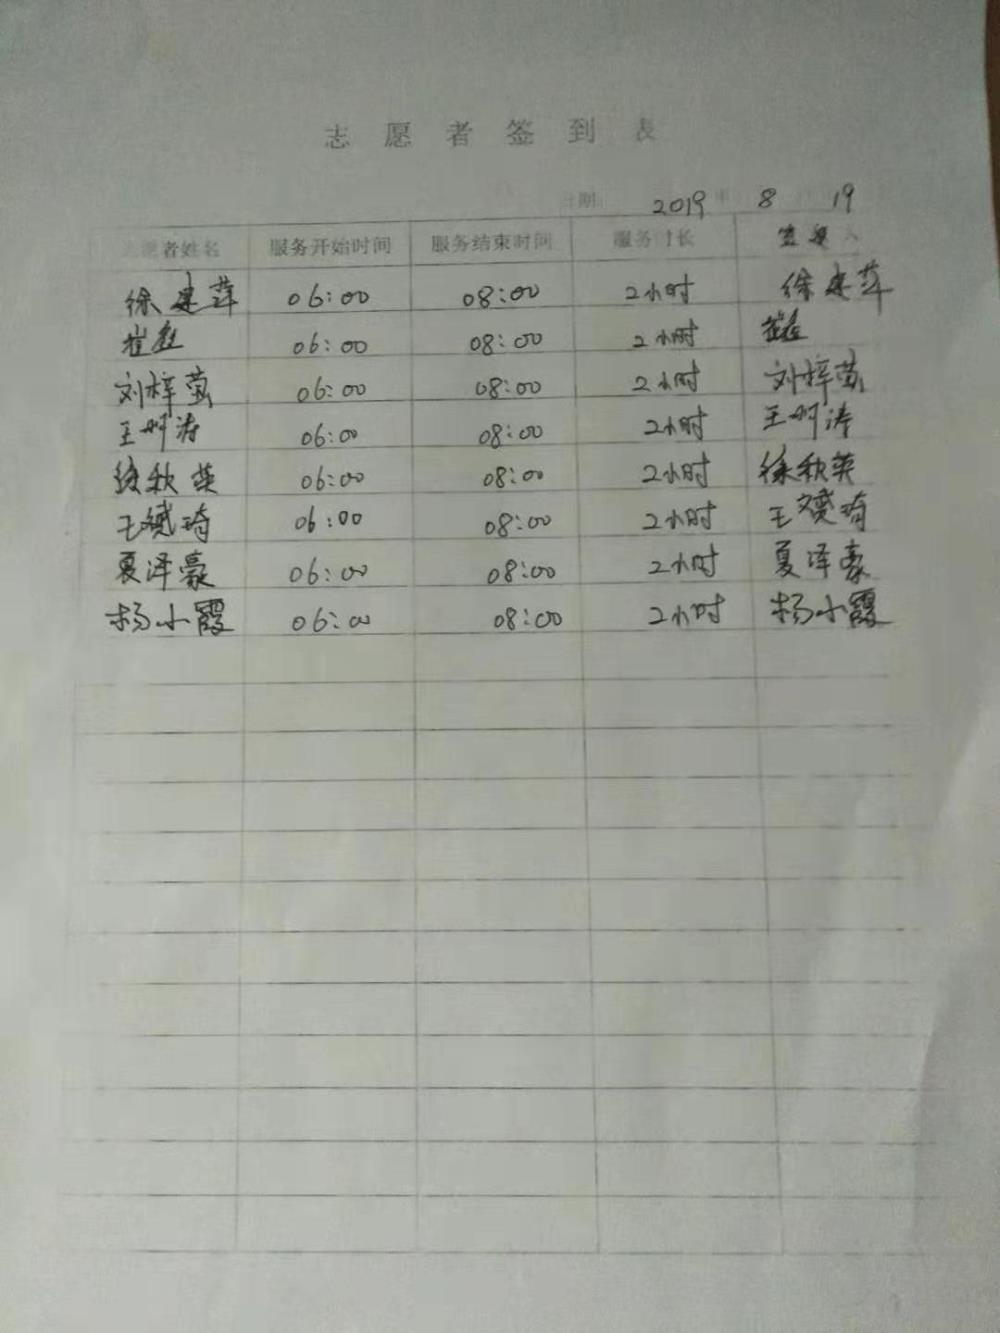 志愿者签到表
日期 2019年 8 19
志愿者姓名 服务开始时间 服务结束时间 服务时长
徐建萍 06:00 08:00 2小时 徐建萍
06:00 08:00 2小时
刘梓萤 06:00 08:00 2小时 刘梓萤
06:00 08:00 2小时
徐秋英 06:00 08:00 2小时 徐秋英
06:00 08:00 2小时
夏泽豪 06:00 08:00 2小时 夏泽豪
杨小霞 06:00 08:00 2小时 杨小霞